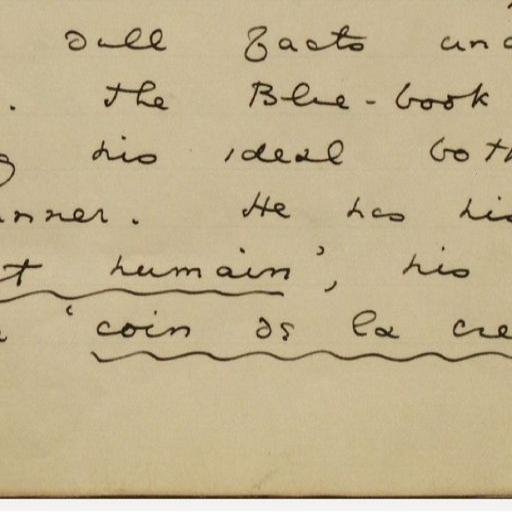 dull facts and
. The Blue-book
his ideal both
anner. He has his
t humain', his
'coin de la cre